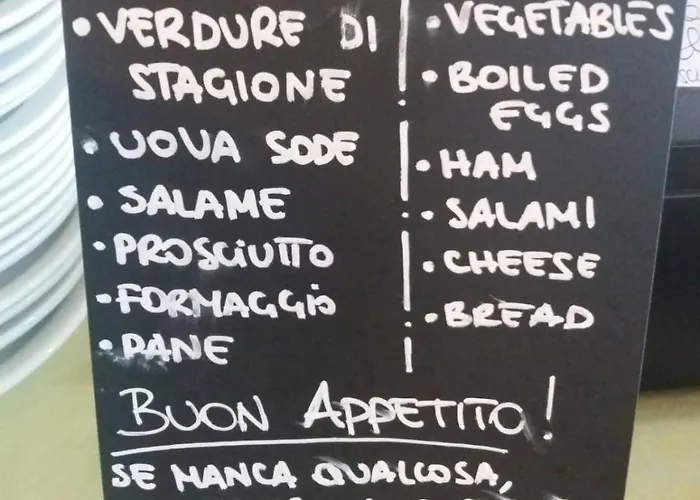 • VERDURE DI
STAGIONE
• UOVA SODE
• SALAME
• PROSCIUTTO
• FORMAGGIO
• PANE
• VEGETABLES
• BOILED
EGGS
• HAM
• SALAMI
• CHEESE
• BREAD
BUON APPETITO!
SE MANCA QUALCOSA,